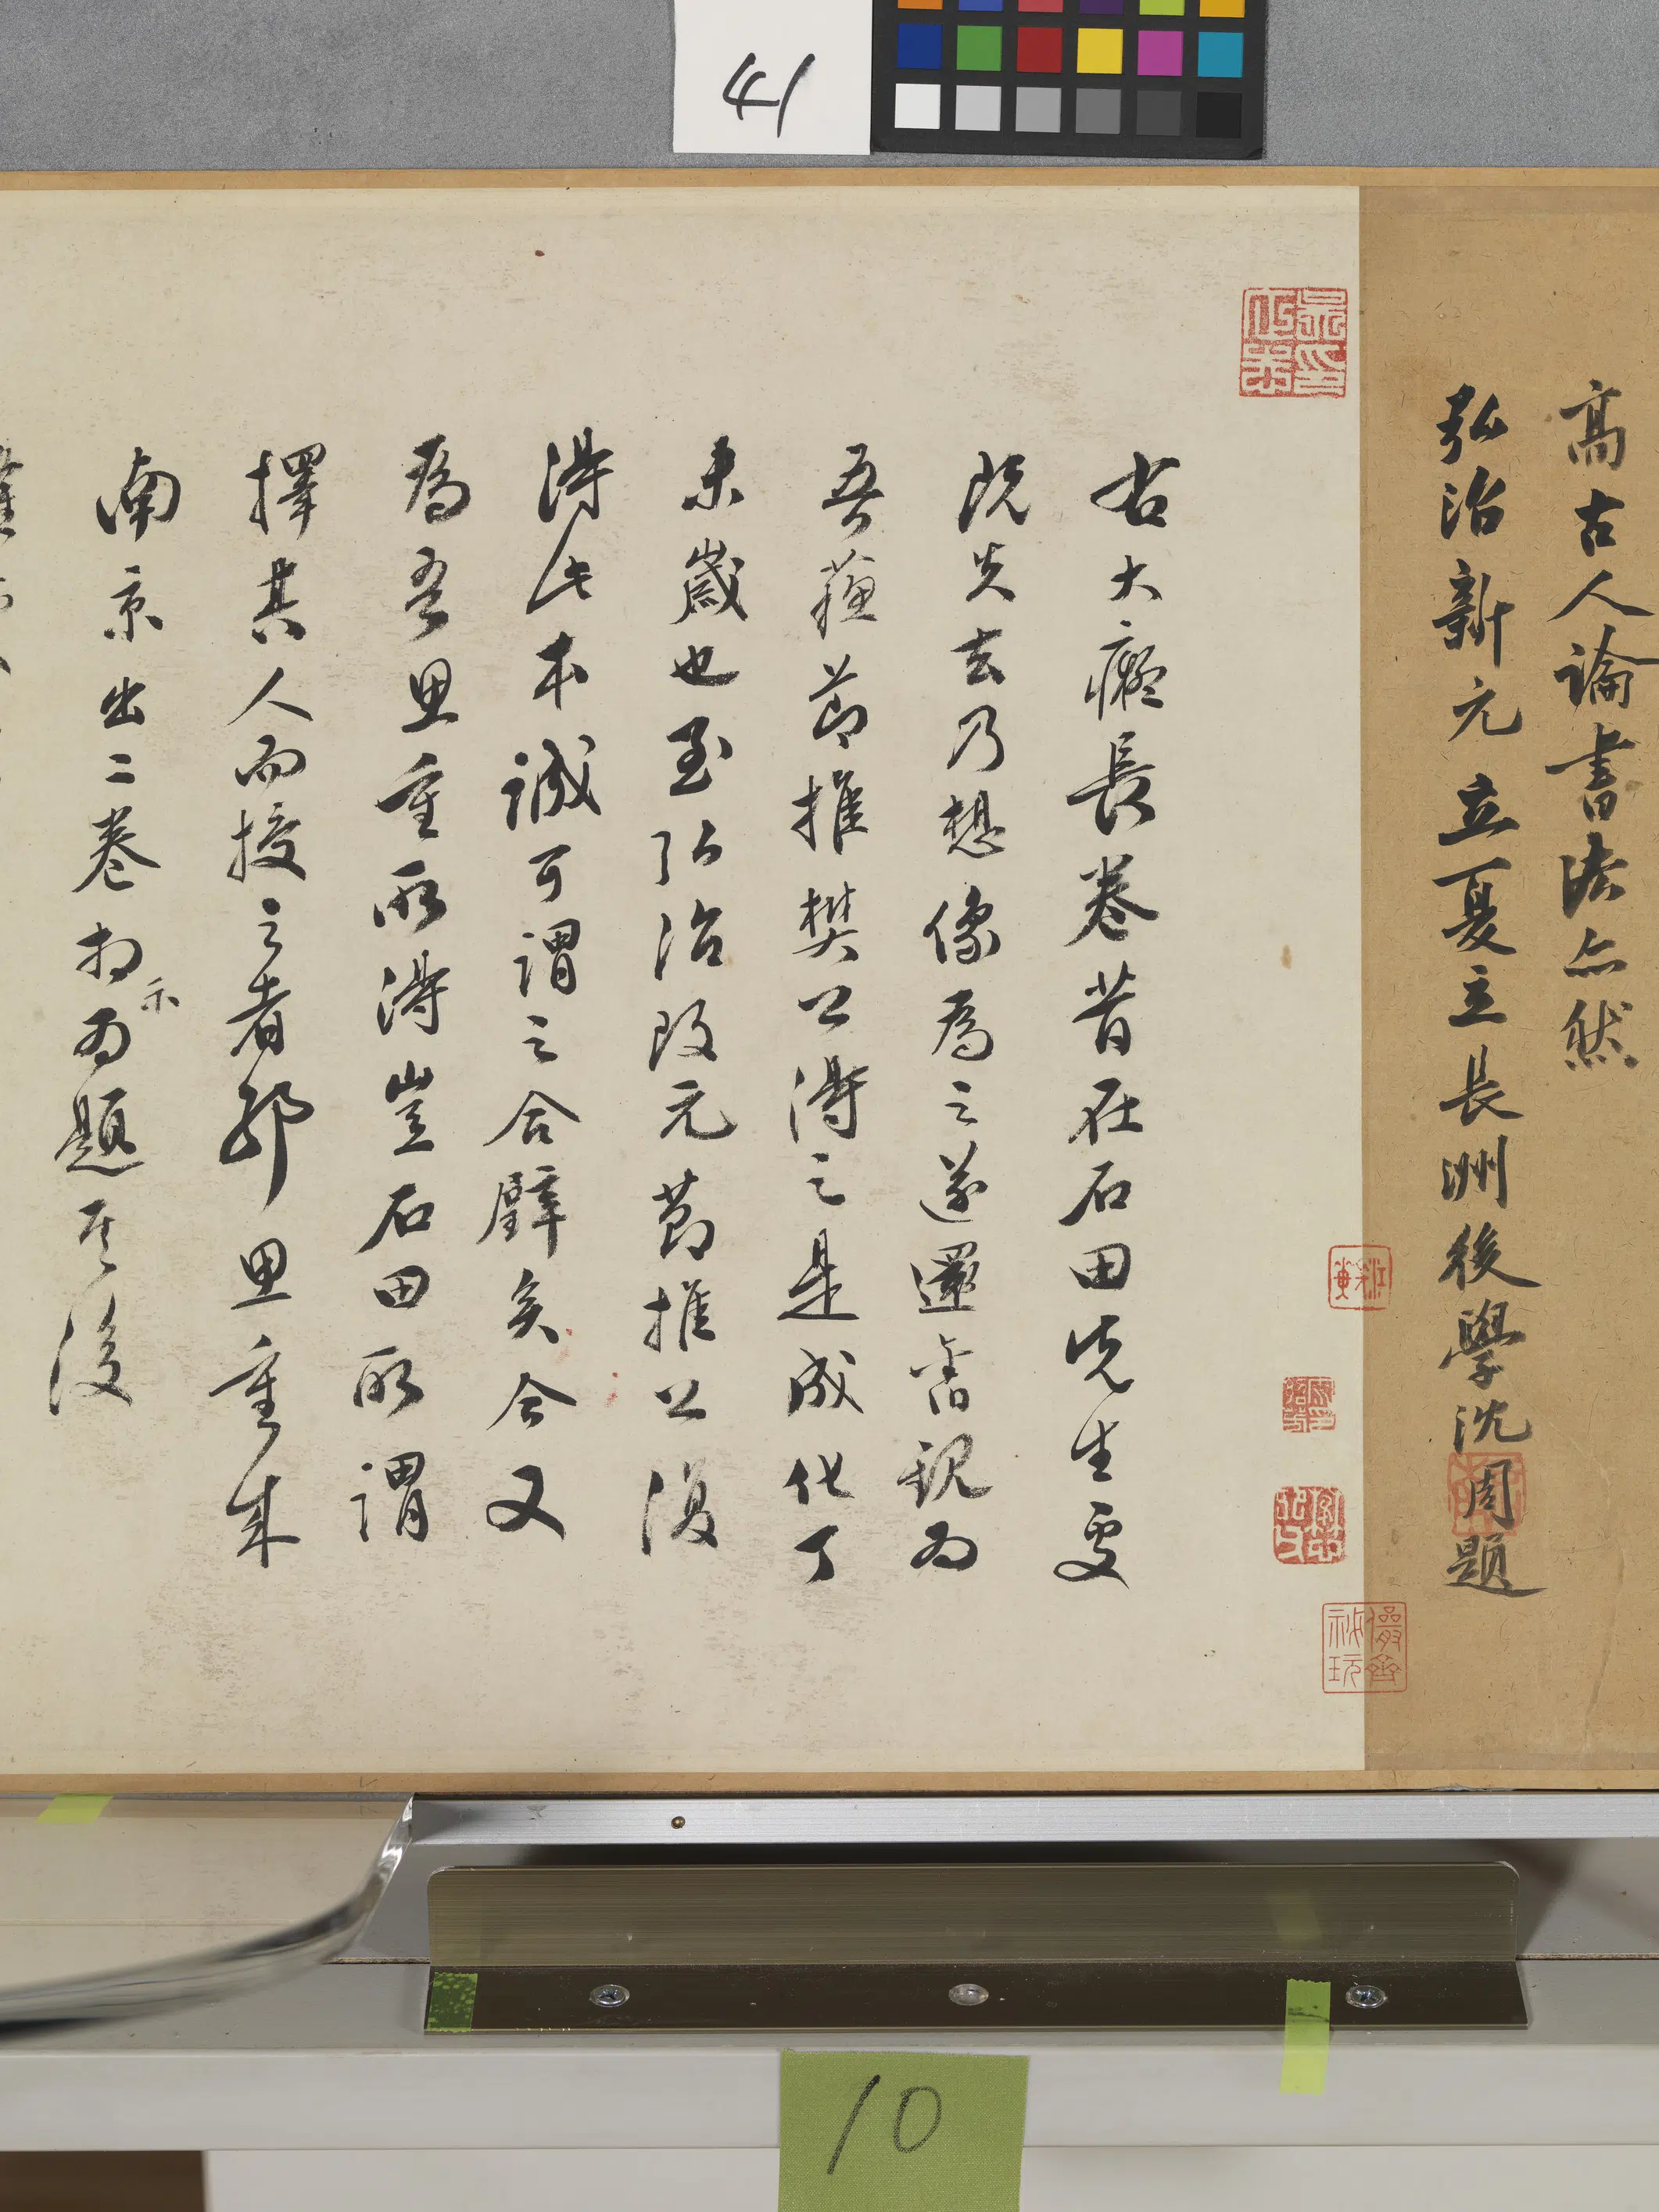 41
高古人論書法亦然
弘治新元立夏立長洲後學沈周題
右大癡長卷昔在石田先生處
既失去乃想像為之遂還舊觀為
吾蘇節推樊公得之是成化丁
未歲也至弘治改元節推公復
得此本誠可謂之合璧矣今又
為吾思重所得豈石田所謂
擇其人而授之者耶思重來
南京出二卷相示為題其後
10